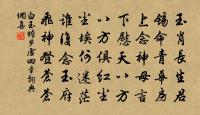 玉肖長生君
錫命青華房
上念神母言
下慰天人望
八方俱紅塵
塵埃何迷茫
誰復念玉府
飛神登蒼蒼
白玉蟾步虛四章詞典
網書